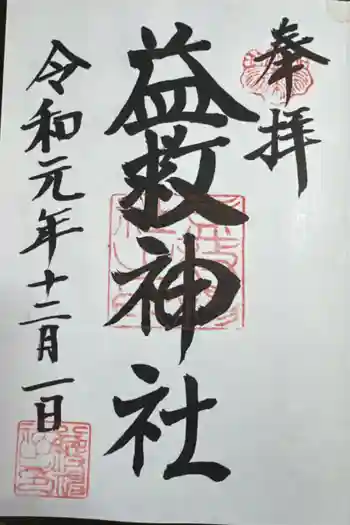 奉拝
益救神社
令和元年十二月一日